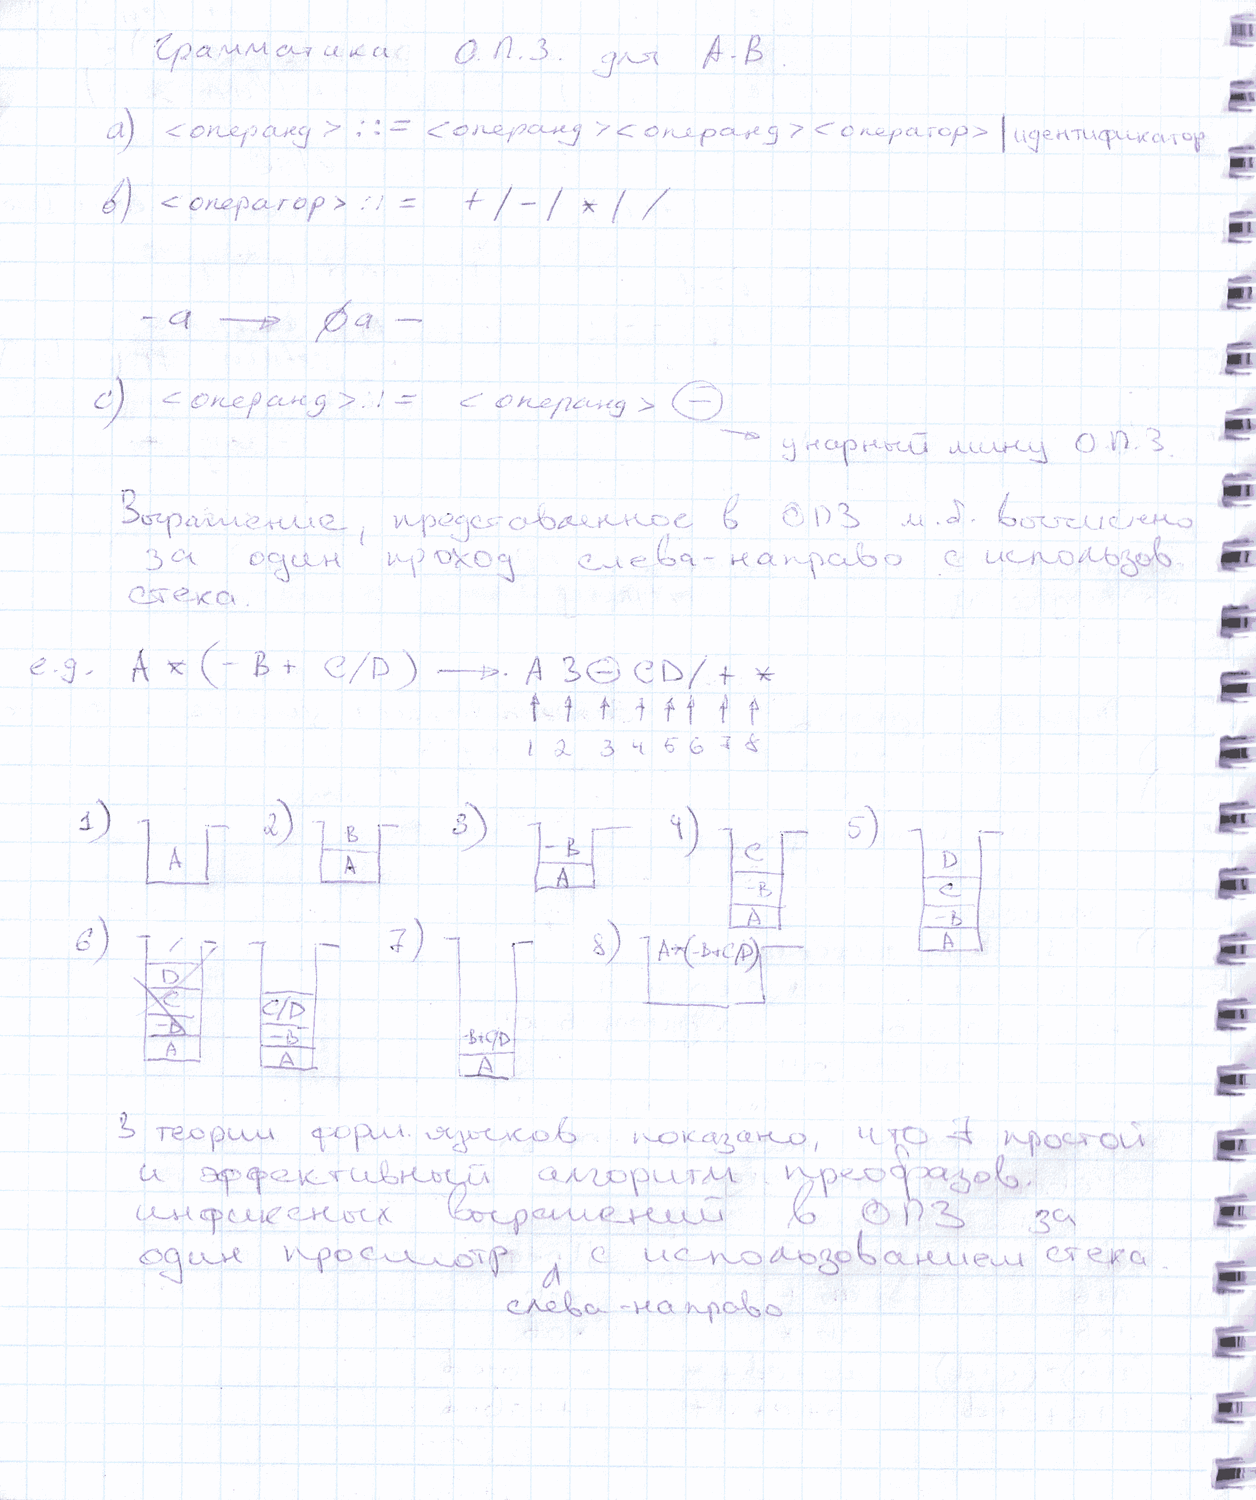 Грамматика О.П.З. для А.В.
а) <операнд> ::= <операнд><операнд><оператор> | идентификатор
в) <оператор> ::= + / - / * / /
- а → 0а -
с) <операнд> ::= <операнд> ⊖
→ унарный мину О.П.З.
Выражение, представленное в ОПЗ м.б. вычислено
за один проход слева-направо с использов.
стека.
e.g. A * (- B + C/D) → A B ⊖ C D / + *
1 2 3 4 5 6 7 8
1) 2) 3) 4) 5)
A
B
A
-B
A
C
-B
A
D
C
-B
A
6) 7) 8)
D
C
-B
A
C/D
-B
A
-B+C/D
A
A*(-B+C/D)
В теории форм. языков показано, что ∃ простой
и эффективный алгоритм преобразов.
инфиксных выражений в ОПЗ за
один просмотр с использованием стека.
слева-направо